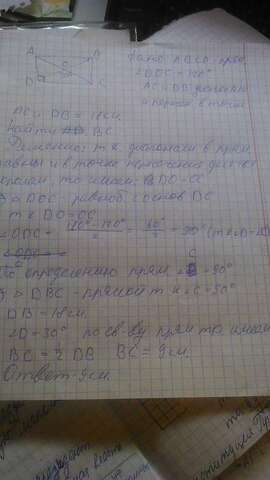 A B
Дано ABCD - прям
O
∠DOC = 120°
D C
AC и DB диагонали
AC и DB = 18 см.
Найти BC
Решение: т к диагонали в прям
равны и в точке пересечения делятся
пополам, то имеем: DO = OC
Δ DOC - равноб с основ DC
т к DO = OC
∠ODC = 180° - 120° / 2 = 60° / 2 = 30°
По определению прям ∠C = 90°
Δ DBC - прямой т к ∠C = 90°
DB = 18 см
∠D = 30° по св-ву прям тр имеем
BC = ½ DB BC = 9 см.
Ответ - 9 см.